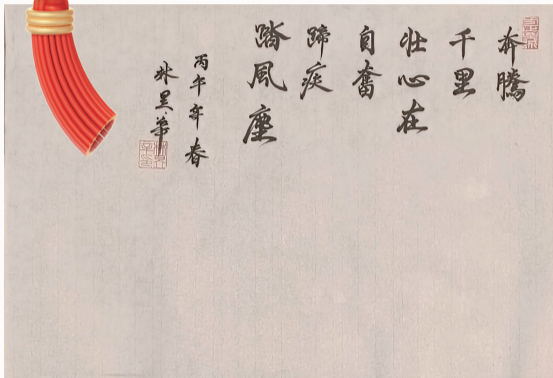 奔騰
千里
壯心在
自奮
蹄疾
踏風塵
丙午年春
林昱華